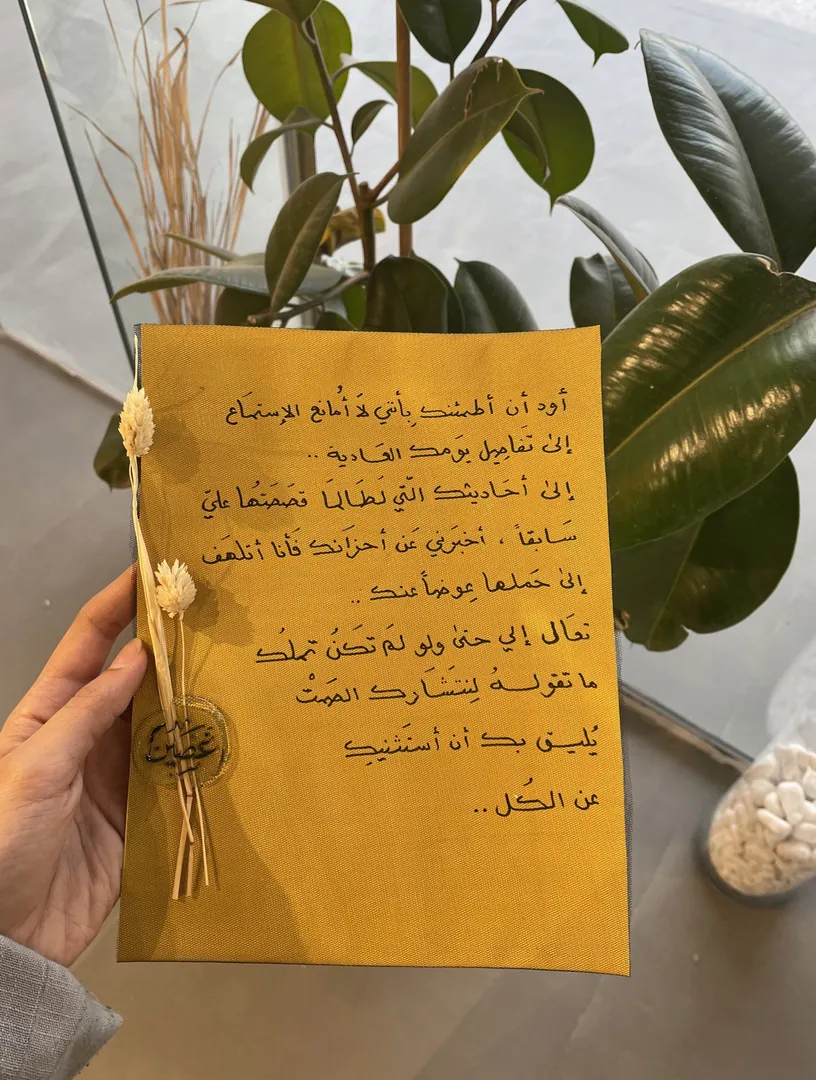 أود أن أطمئنك بأنني لَا أُمانع الإستمَاع
إلى تَفاصِيل يَومك العَادية ..
إلىٰ أحَاديثك الّتي لَطَالمَا قصَصَتُها عليّ
سَابقاً ، أخبَرني عَن أحزَانك فَأنا أتلهَف
إلىٰ حَملها عِوضاً عنك ..
تعَال إلي حتىٰ ولو لمَ تكَنُ تملك
ما تقولهُ لِنتشَارك الصَمتْ
يُليق بك أن أستَثنيكِ
عن الكُل ..
غصين